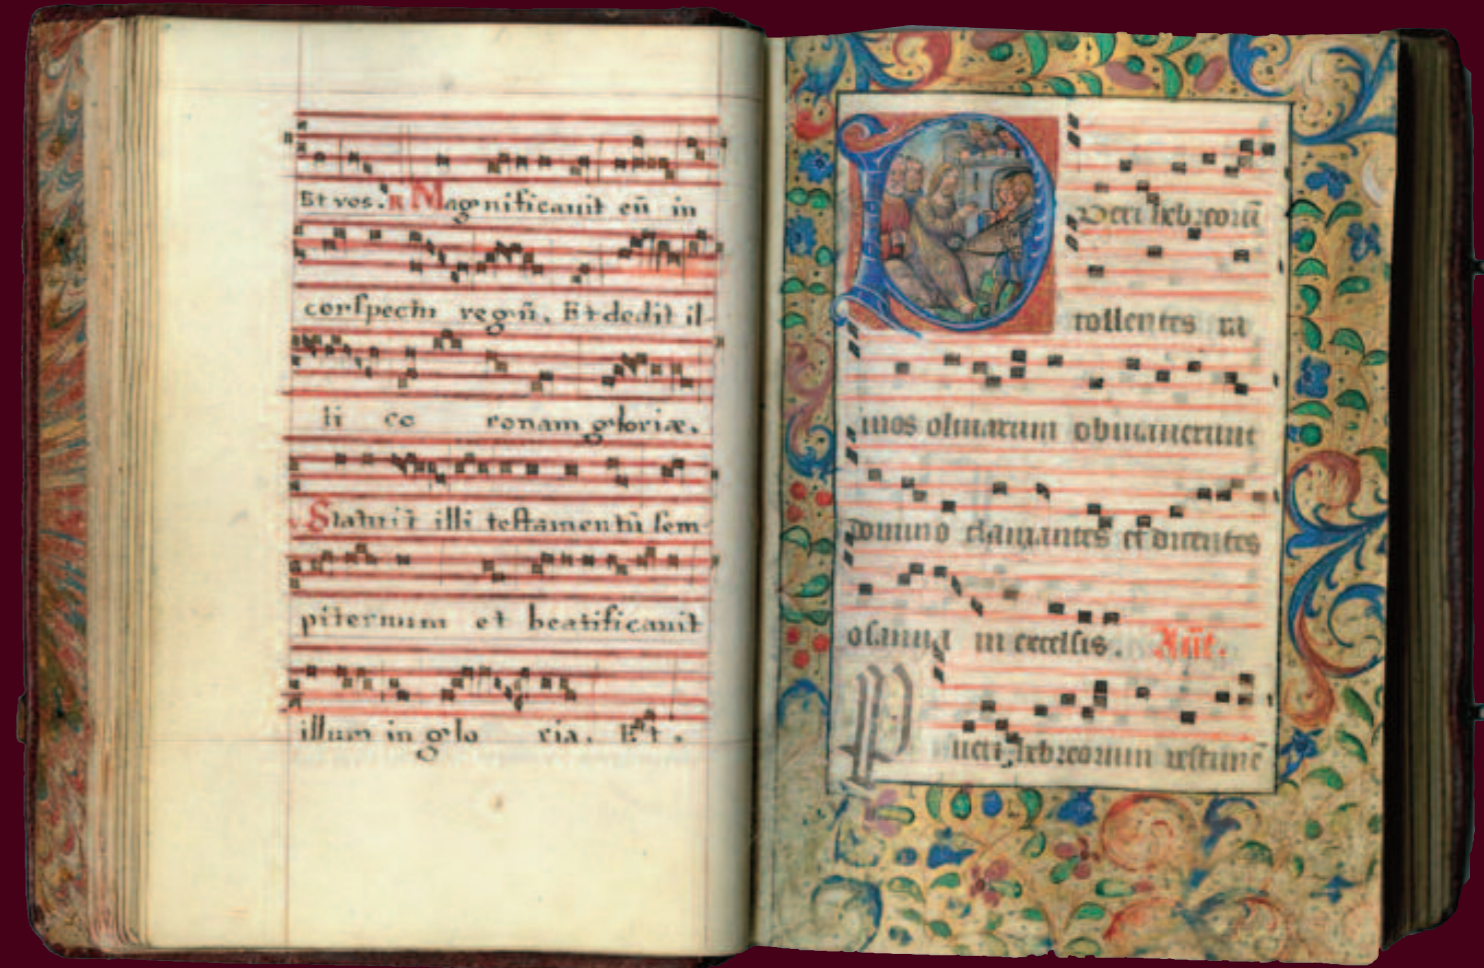 Et vos. R Magnificauit eũ in
conspectu regũ. Et dedit il-
li co ronam gloriæ.
Statuit illi testamentũ sem-
piternum et beatificauit
illum in glo ria. Et.
Pueri hebreorũ
tollentes ra
mos oliuarum obuiauerunt
domino clamantes et dicentes
osanna in excelsis. Añt.
Pueri hebreorum vestimẽ